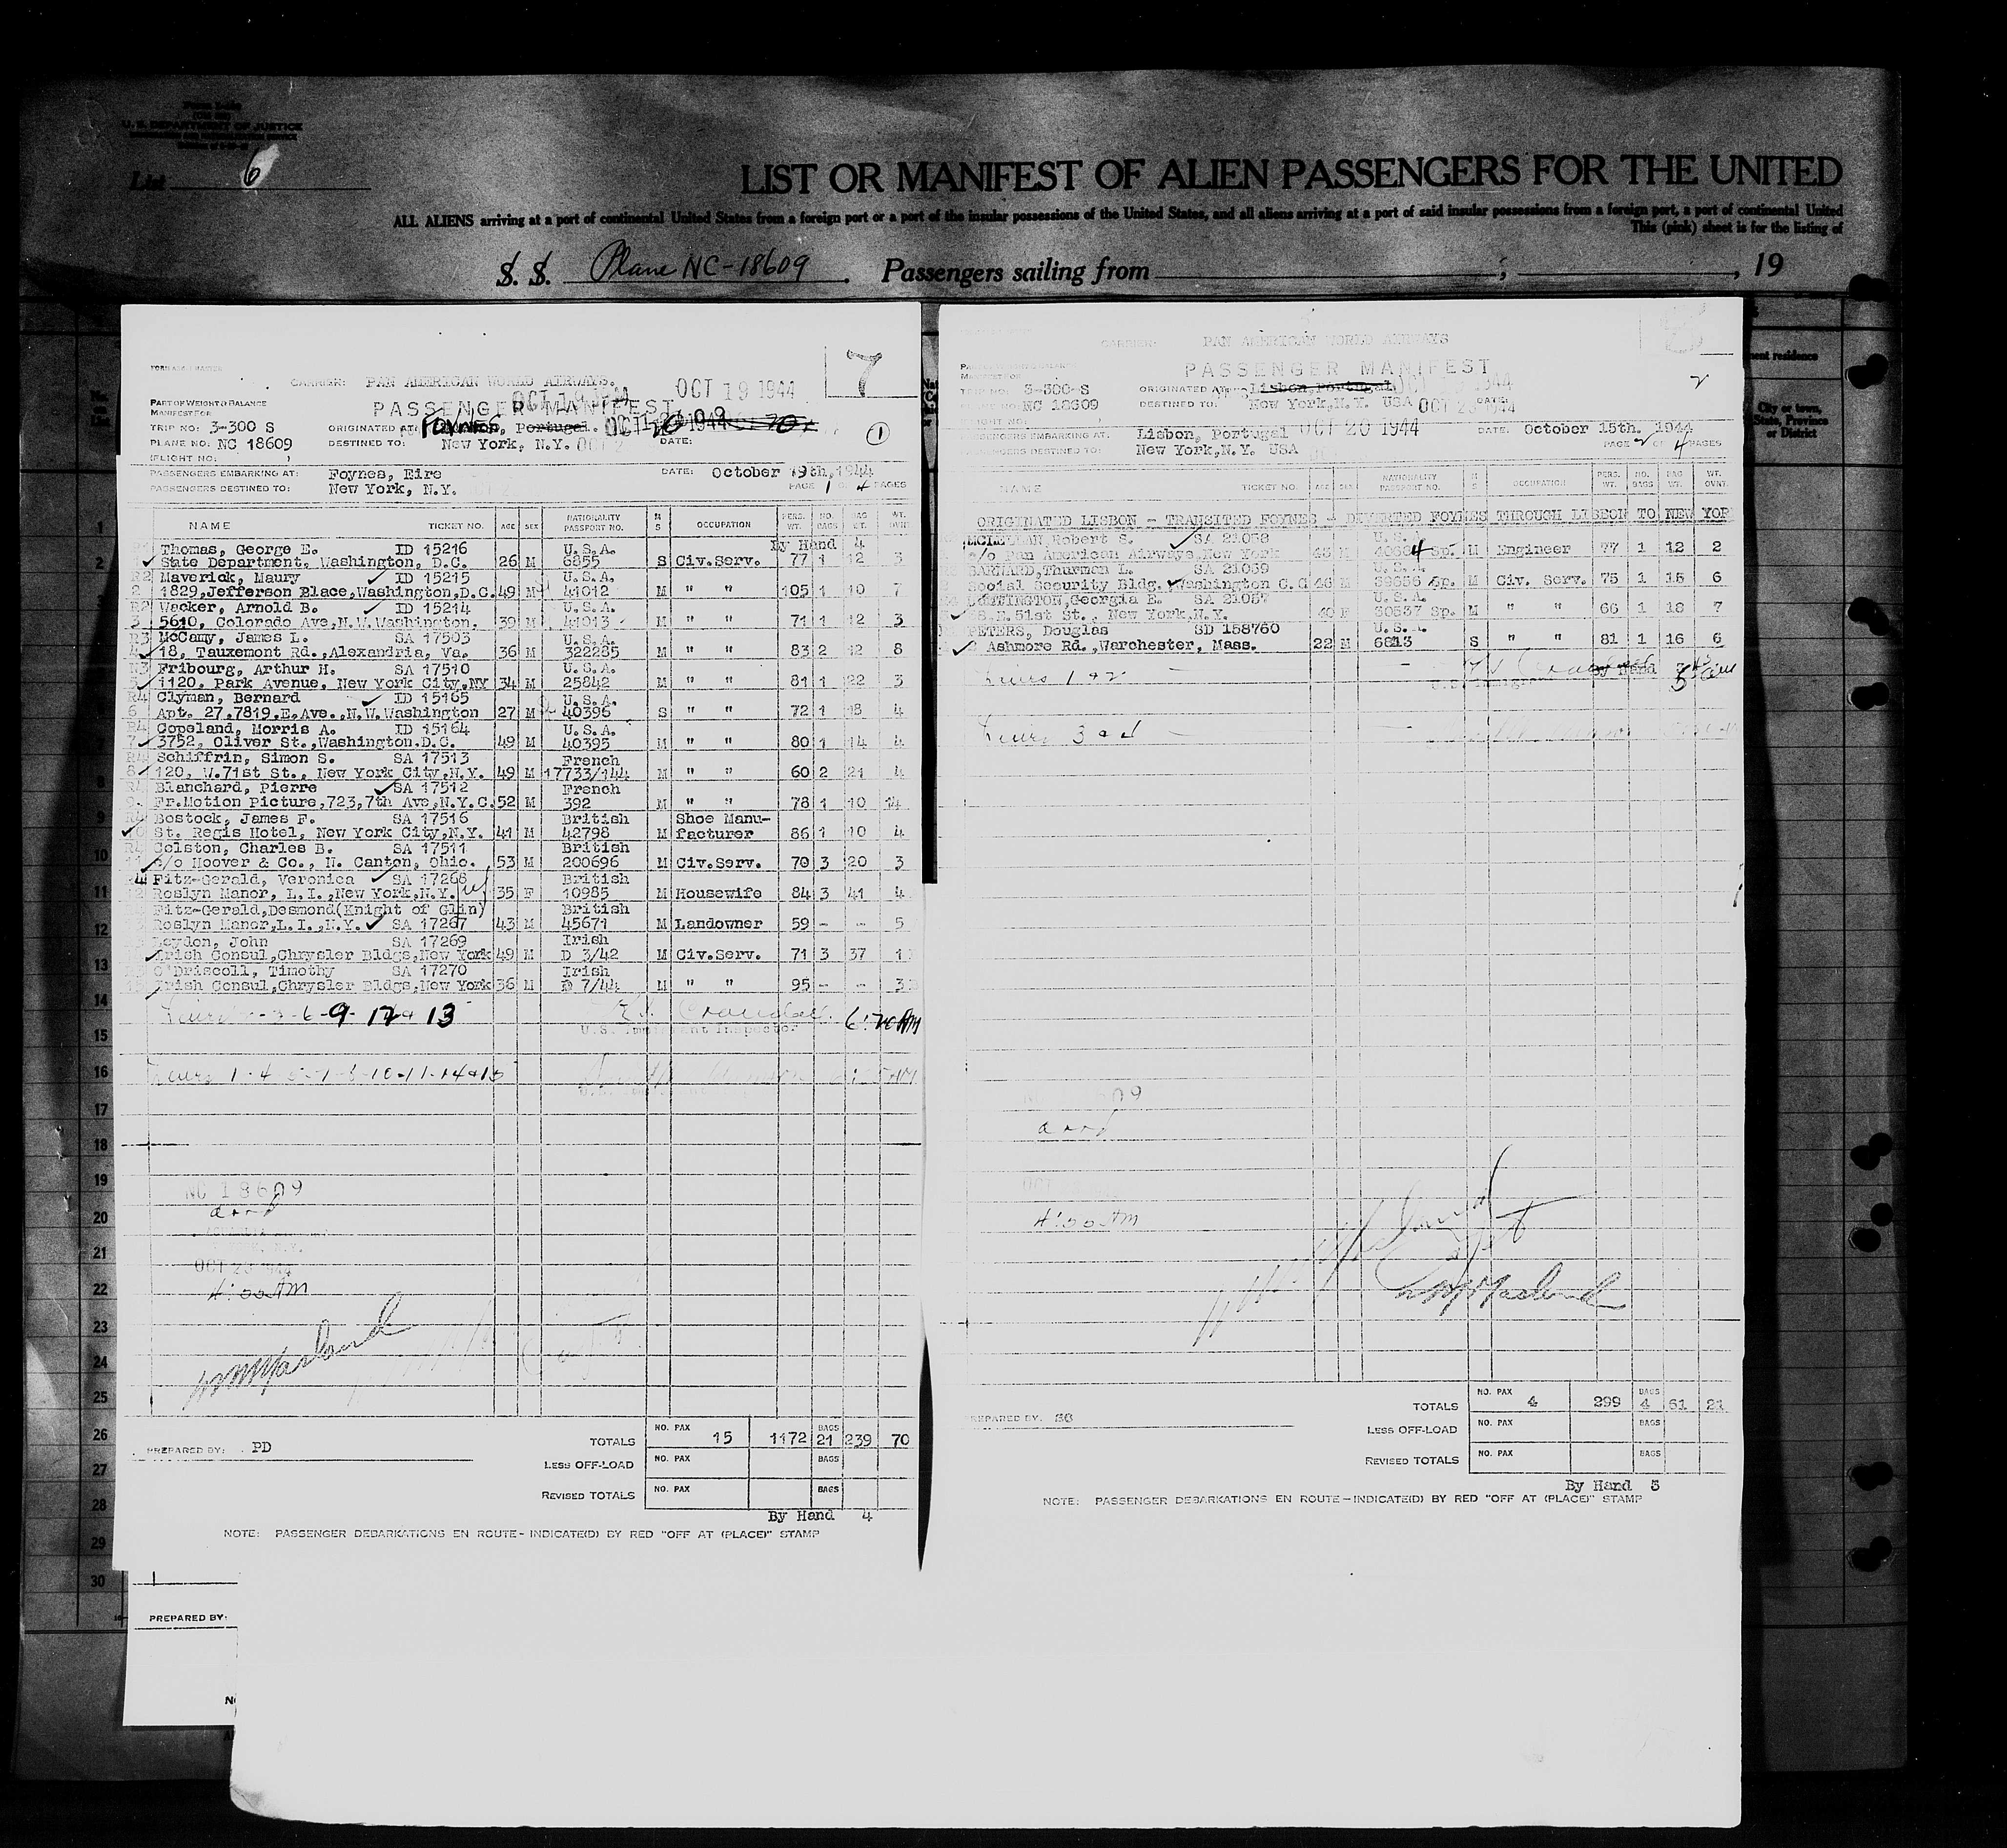 U. S. DEPARTMENT OF JUSTICE
List 6
LIST OR MANIFEST OF ALIEN PASSENGERS FOR THE UNITED
ALL ALIENS arriving at a port of continental United States from a foreign port or a port of the insular possessions of the United States, and all aliens arriving at a port of said insular possessions from a foreign port, a port of continental United
This (pink) sheet is for the listing of
S. S. Plane NC-18609. Passengers sailing from ; , 19
7
CARRIER: PAN AMERICAN WORLD AIRWAYS.
OCT 19 1944
PASSENGER MANIFEST
PART OF WEIGHT & BALANCE
MANIFEST FOR
TRIP NO: 3-300 S ORIGINATED AT: FOYNES, Portugal.
PLANE NO: NC 18609 DESTINED TO: New York, N.Y. DATE: 1
(FLIGHT NO: )
PASSENGERS EMBARKING AT: Foynes, Eire DATE: October 19th, 1944
PASSENGERS DESTINED TO: New York, N.Y. PAGE 1 OF 4 PAGES
NAME TICKET NO. AGE SEX NATIONALITY PASSPORT NO. M S OCCUPATION PERS. WT. NO. BAGS BAG WT. WT. OVNT
By Hand 4
Thomas, George E. ID 15216 U.S.A.
1 State Department, Washington, D.C. 26 M 6855 S Civ.Serv. 77 1 12 3
R2 Maverick, Maury ID 15215 U.S.A.
2 1829,Jefferson Place,Washington,D.C. 49 M 41012 M " " 105 1 10 7
R2 Wacker, Arnold B. ID 15214 U.S.A.
3 5610, Colorado Ave,N.W.Washington. 39 M 41013 M " " 71 1 12 3
R3 McCamy, James L. SA 17503 U.S.A.
4 18, Tauxemont Rd.,Alexandria, Va. 36 M 322285 M " " 83 2 12 8
R3 Fribourg, Arthur H. SA 17510 U.S.A.
1120, Park Avenue, New York City,NY 34 M 25842 M " " 81 1 22 3
R4 Clyman, Bernard ID 15165 U.S.A.
6 Apt. 27,7819,E.Ave.,N.W.Washington 27 M 40396 S " " 72 1 18 4
R4 Copeland, Morris A. ID 15164 U.S.A.
7 3752, Oliver St.,Washington.D.C. 49 M 40395 M " " 80 1 14 4
R4 Schiffrin, Simon S. SA 17513 French
8 120, W.71st St., New York City,N.Y. 49 M 17733/144 M " " 60 2 21 4
R4 Blanchard, Pierre SA 17512 French
9 Fr.Motion Picture,723,7th Ave,N.Y.C. 52 M 392 M " " 78 1 10 14
R4 Bostock, James F. SA 17516 British Shoe Manu-
10 St. Regis Hotel, New York City,N.Y. 41 M 42798 M facturer 86 1 10 4
R4 Colston, Charles B. SA 17511 British
11 c/o Hoover & Co., N. Canton, Ohio. 53 M 200696 M Civ.Serv. 70 3 20 3
R4 Fitz-Gerald, Veronica SA 17268 British
12 Roslyn Manor, L.I.,New York,N.Y. 35 F 10985 M Housewife 84 3 41 4
Fitz-Gerald,Desmond(Knight of Glin) British
Roslyn Manor,L.I.,N.Y. SA 17267 43 M 45671 M Landowner 59 - - 5
Leydon, John SA 17269 Irish
Irish Consul,Chrysler Bldgs,New York 49 M D 3/42 M Civ.Serv. 71 3 37 1
O'Driscoll, Timothy SA 17270 Irish
Irish Consul,Chrysler Bldgs,New York 36 M D 7/44 M " " 95 - - 3
6-9-12 & 13 Crandall 6:20 AM
U.S. Immigrant Inspector
Lines 1-4-5-7-8-10-11-14&15
NC 18609
arrd
OCT 23 1944
4:00 AM
PREPARED BY: PD
TOTALS NO. PAX 15 1172 BAGS 21 239 70
LESS OFF-LOAD NO. PAX BAGS
REVISED TOTALS NO. PAX BAGS
By Hand 4
NOTE: PASSENGER DEBARKATIONS EN ROUTE-INDICATE(D) BY RED "OFF AT (PLACE)" STAMP
PREPARED BY:
CARRIER: PAN AMERICAN WORLD AIRWAYS
PASSENGER MANIFEST
2
TRIP NO: 3-300-S ORIGINATED AT: Lisbon, Portugal
PLANE NO: NC 18609 DESTINED TO: New York,N.Y. USA DATE:
FLIGHT NO:
PASSENGERS EMBARKING AT: Lisbon, Portugal OCT 20 1944 DATE: October 15th. 1944
PASSENGERS DESTINED TO: New York,N.Y. USA PAGE 2 OF 4 PAGES
NAME TICKET NO. AGE SEX NATIONALITY PASSPORT NO. M S OCCUPATION PERS. WT. NO. BAGS BAG WT. WT. OVNT.
ORIGINATED LISBON - TRANSITED FOYNES - DEVERTED FOYNES THROUGH LISBON TO NEW YOR
Robert S. SA 21058 U.S.A.
c/o Pan American Airways,New York M Sp. M Engineer 77 1 12 2
BARNARD,Thurmon L. SA 21059 U.S.A.
Social Security Bldg. Washington C.C 46 M 39656 Sp. M Civ. Serv. 75 1 15 6
Georgia E. SA 21057 U.S.A.
E.51st St., New York,N.Y. 40 F 30537 Sp. M " " 66 1 18 7
PETERS, Douglas SD 158760 U.S.A.
Ashmore Rd.,Warchester, Mass. 22 M 6813 S " " 81 1 16 6
Lines 1 & 2
Lines 3 & 4
arrd
4:00 AM
PREPARED BY:
TOTALS NO. PAX 4 299 BAGS 4 61 21
LESS OFF-LOAD NO. PAX BAGS
REVISED TOTALS NO. PAX BAGS
By Hand 5
NOTE: PASSENGER DEBARKATIONS EN ROUTE-INDICATE(D) BY RED "OFF AT (PLACE)" STAMP
City or town,
State, Province
or District
1
2
9
10
11
12
13
14
15
16
17
18
19
20
21
22
23
24
25
26
27
28
29
30